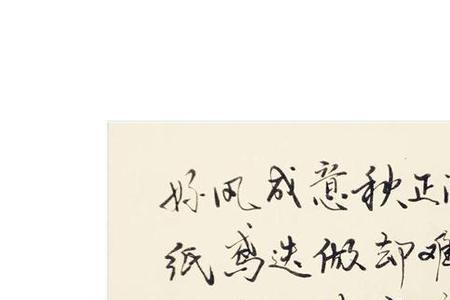 好风成意秋正
纸鸢迭做却难